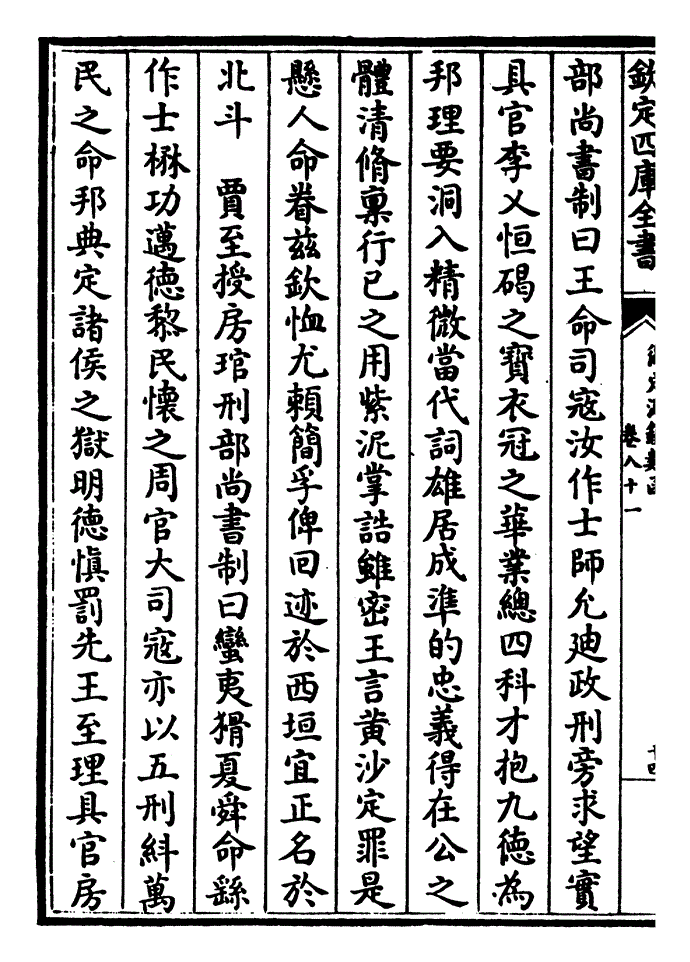 欽定四庫全書
卷八十一
部尚書制曰王命司寇汝作士師允廸政刑旁求望實
具官李乂恒碣之寳衣冠之華業總四科才抱九徳為
邦理要洞入精微當代詞雄居成準的忠義得在公之
體清脩稟行已之用紫泥掌誥雖密王言黄沙定罪是
懸人命眷兹欽恤尤頼簡孚俾回迹於西垣宜正名於
北斗　賈至授房琯刑部尚書制曰蠻夷猾夏舜命繇
作士楙功邁徳黎民懷之周官大司寇亦以五刑紏萬
民之命邦典定諸侯之獄明徳慎罰先王至理具官房